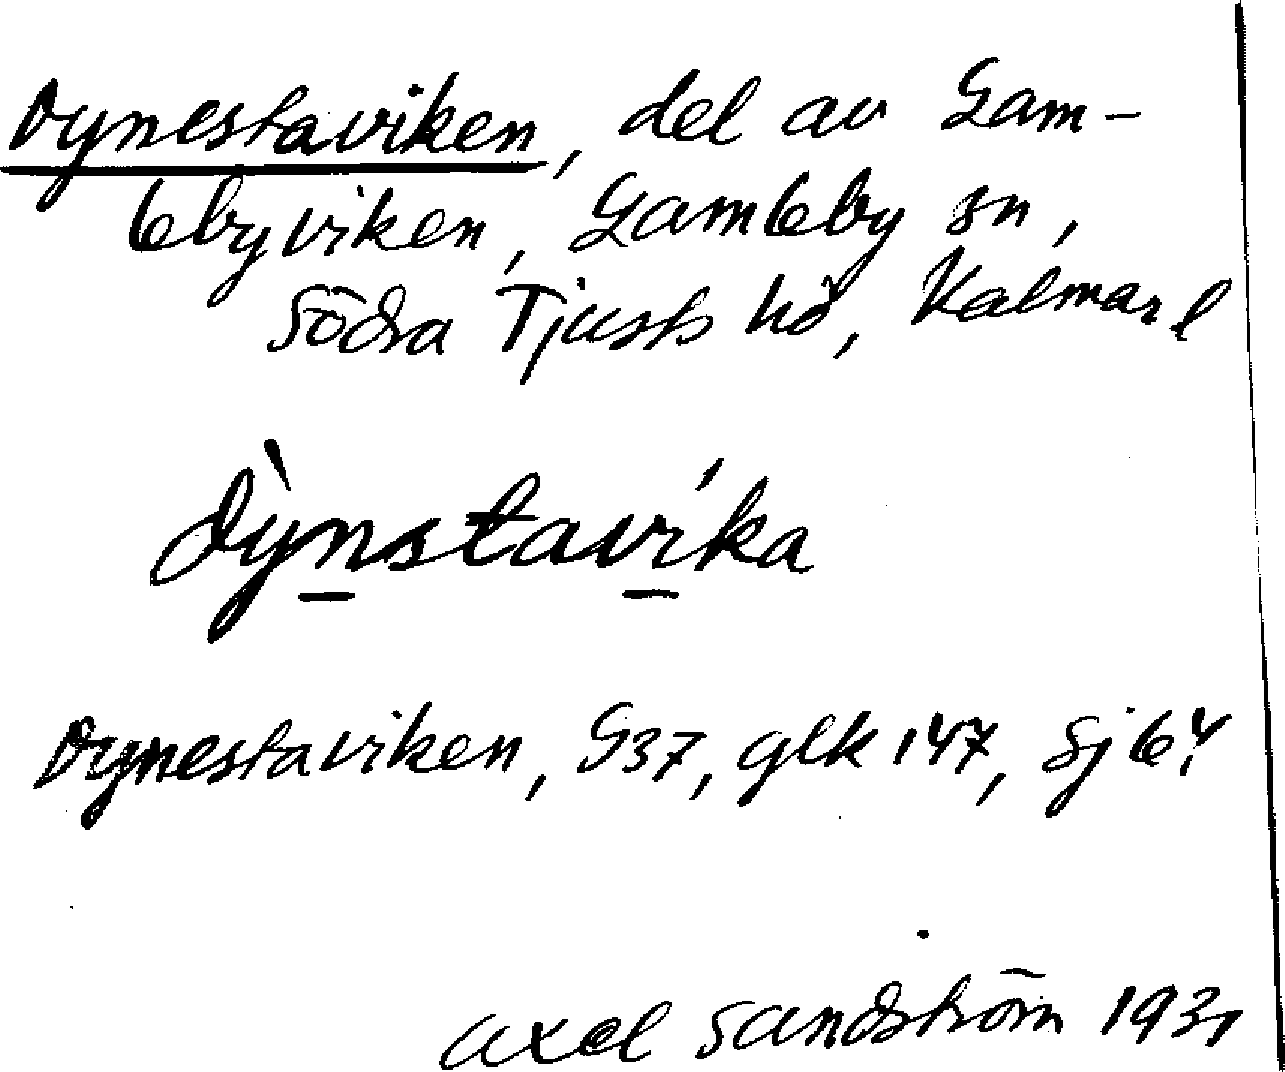 Dynestaviken, del av Gam-
lebyviken, Gamleby sn,
Södra Tjusts hd, Kalmar l
dỳnstavíka
Dynestaviken, G37, glk 147, Sj 64
Axel Sandström 1931